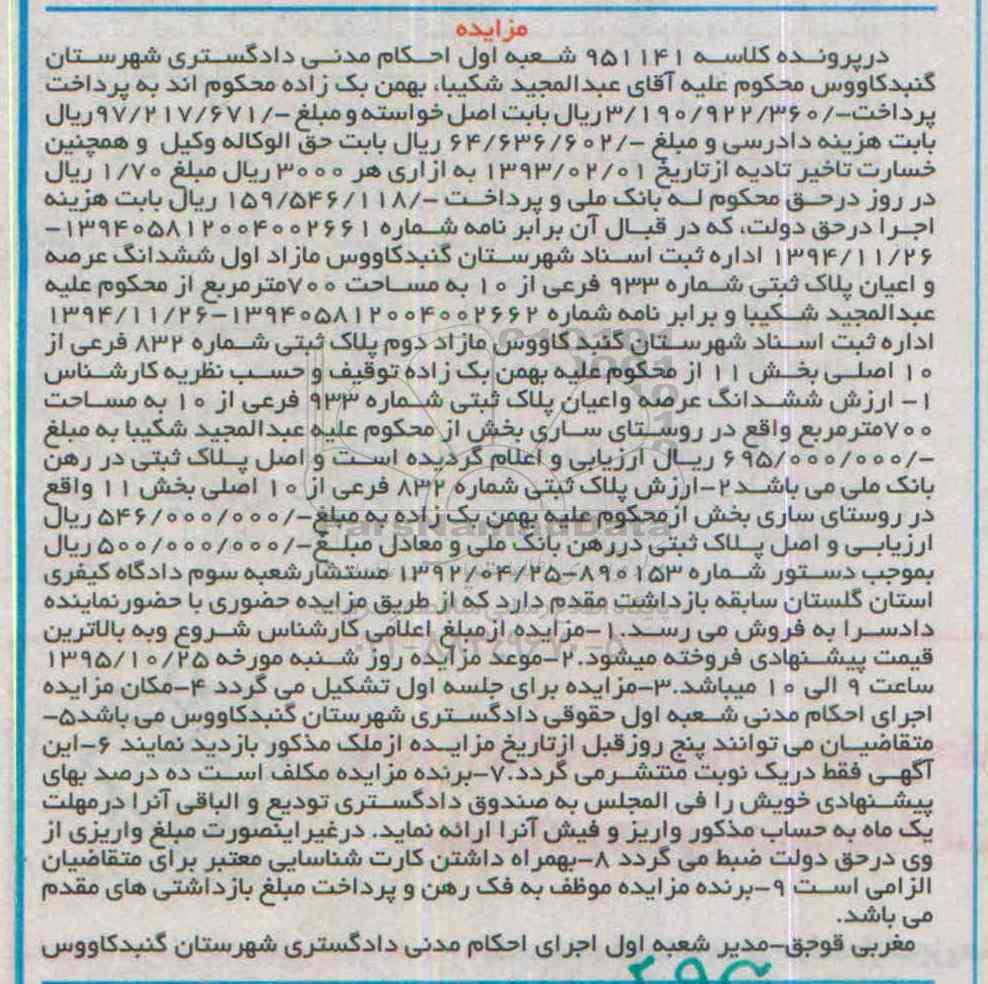 مزایده
درپرونده کلاسه ۹۵۱۱۴۱ شعبه اول احکام مدنی دادگستری شهرستان
گنبدکاووس محکوم علیه آقای عبدالمجید شکیبا، بهمن بک زاده محکوم اند به پرداخت
پرداخت-/۳/۱۹۰/۹۲۲/۳۶۰ ریال بابت اصل خواسته و مبلغ -/۹۷/۲۱۷/۶۷۱ ریال
بابت هزینه دادرسی و مبلغ -/۶۴/۶۳۶/۶۰۲ ریال بابت حق الوکاله وکیل و همچنین
خسارت تاخیر تادیه ازتاریخ ۱۳۹۳/۰۲/۰۱ به ازاری هر ۳۰۰۰ ریال مبلغ ۱/۷۰ ریال
در روز درحق محکوم له بانک ملی و پرداخت -/۱۵۹/۵۴۶/۱۱۸ ریال بابت هزینه
اجرا درحق دولت، که در قبال آن برابر نامه شماره ۱۳۹۴۰۵۸۱۲۰۰۴۰۰۲۶۶۱-
۱۳۹۴/۱۱/۲۶ اداره ثبت اسناد شهرستان گنبدکاووس مازاد اول ششدانگ عرصه
و اعیان پلاک ثبتی شماره ۹۳۳ فرعی از ۱۰ به مساحت ۷۰۰مترمربع از محکوم علیه
عبدالمجید شکیبا و برابر نامه شماره ۱۳۹۴۰۵۸۱۲۰۰۴۰۰۲۶۶۲-۱۳۹۴/۱۱/۲۶
اداره ثبت اسناد شهرستان گنبدکاووس مازاد دوم پلاک ثبتی شماره ۸۳۲ فرعی از
۱۰ اصلی بخش ۱۱ از محکوم علیه بهمن بک زاده توقیف و حسب نظریه کارشناس
۱- ارزش ششدانگ عرصه واعیان پلاک ثبتی شماره ۹۳۳ فرعی از ۱۰ به مساحت
۷۰۰مترمربع واقع در روستای ساری بخش از محکوم علیه عبدالمجید شکیبا به مبلغ
-/۶۹۵/۰۰۰/۰۰۰ ریال ارزیابی و اعلام گردیده است و اصل پلاک ثبتی در رهن
بانک ملی می باشد۲-ارزش پلاک ثبتی شماره ۸۳۲ فرعی از ۱۰ اصلی بخش ۱۱ واقع
در روستای ساری بخش ازمحکوم علیه بهمن بک زاده به مبلغ-/۵۴۶/۰۰۰/۰۰۰ ریال
ارزیابی و اصل پلاک ثبتی دررهن بانک ملی و معادل مبلغ-/۵۰۰/۰۰۰/۰۰۰ ریال
بموجب دستور شماره ۸۹۰۱۵۳-۱۳۹۲/۰۴/۲۵ مستشارشعبه سوم دادگاه کیفری
استان گلستان سابقه بازداشت مقدم دارد که از طریق مزایده حضوری با حضورنماینده
دادسرا به فروش می رسد.۱-مزایده ازمبلغ اعلامی کارشناس شروع وبه بالاترین
قیمت پیشنهادی فروخته میشود.۲-موعد مزایده روز شنبه مورخه ۱۳۹۵/۱۰/۲۵
ساعت ۹ الی ۱۰ میباشد.۳-مزایده برای جلسه اول تشکیل می گردد ۴-مکان مزایده
اجرای احکام مدنی شعبه اول حقوقی دادگستری شهرستان گنبدکاووس می باشد۵-
متقاضیان می توانند پنج روزقبل ازتاریخ مزایده ازملک مذکور بازدید نمایند ۶-این
آگهی فقط دریک نوبت منتشرمی گردد.۷-برنده مزایده مکلف است ده درصد بهای
پیشنهادی خویش را فی المجلس به صندوق دادگستری تودیع و الباقی آنرا درمهلت
یک ماه به حساب مذکور واریز و فیش آنرا ارائه نماید. درغیراینصورت مبلغ واریزی از
وی درحق دولت ضبط می گردد ۸-بهمراه داشتن کارت شناسایی معتبر برای متقاضیان
الزامی است ۹-برنده مزایده موظف به فک رهن و پرداخت مبلغ بازداشتی های مقدم
می باشد.
مغربی قوجق-مدیر شعبه اول اجرای احکام مدنی دادگستری شهرستان گنبدکاووس
ParsNamadData